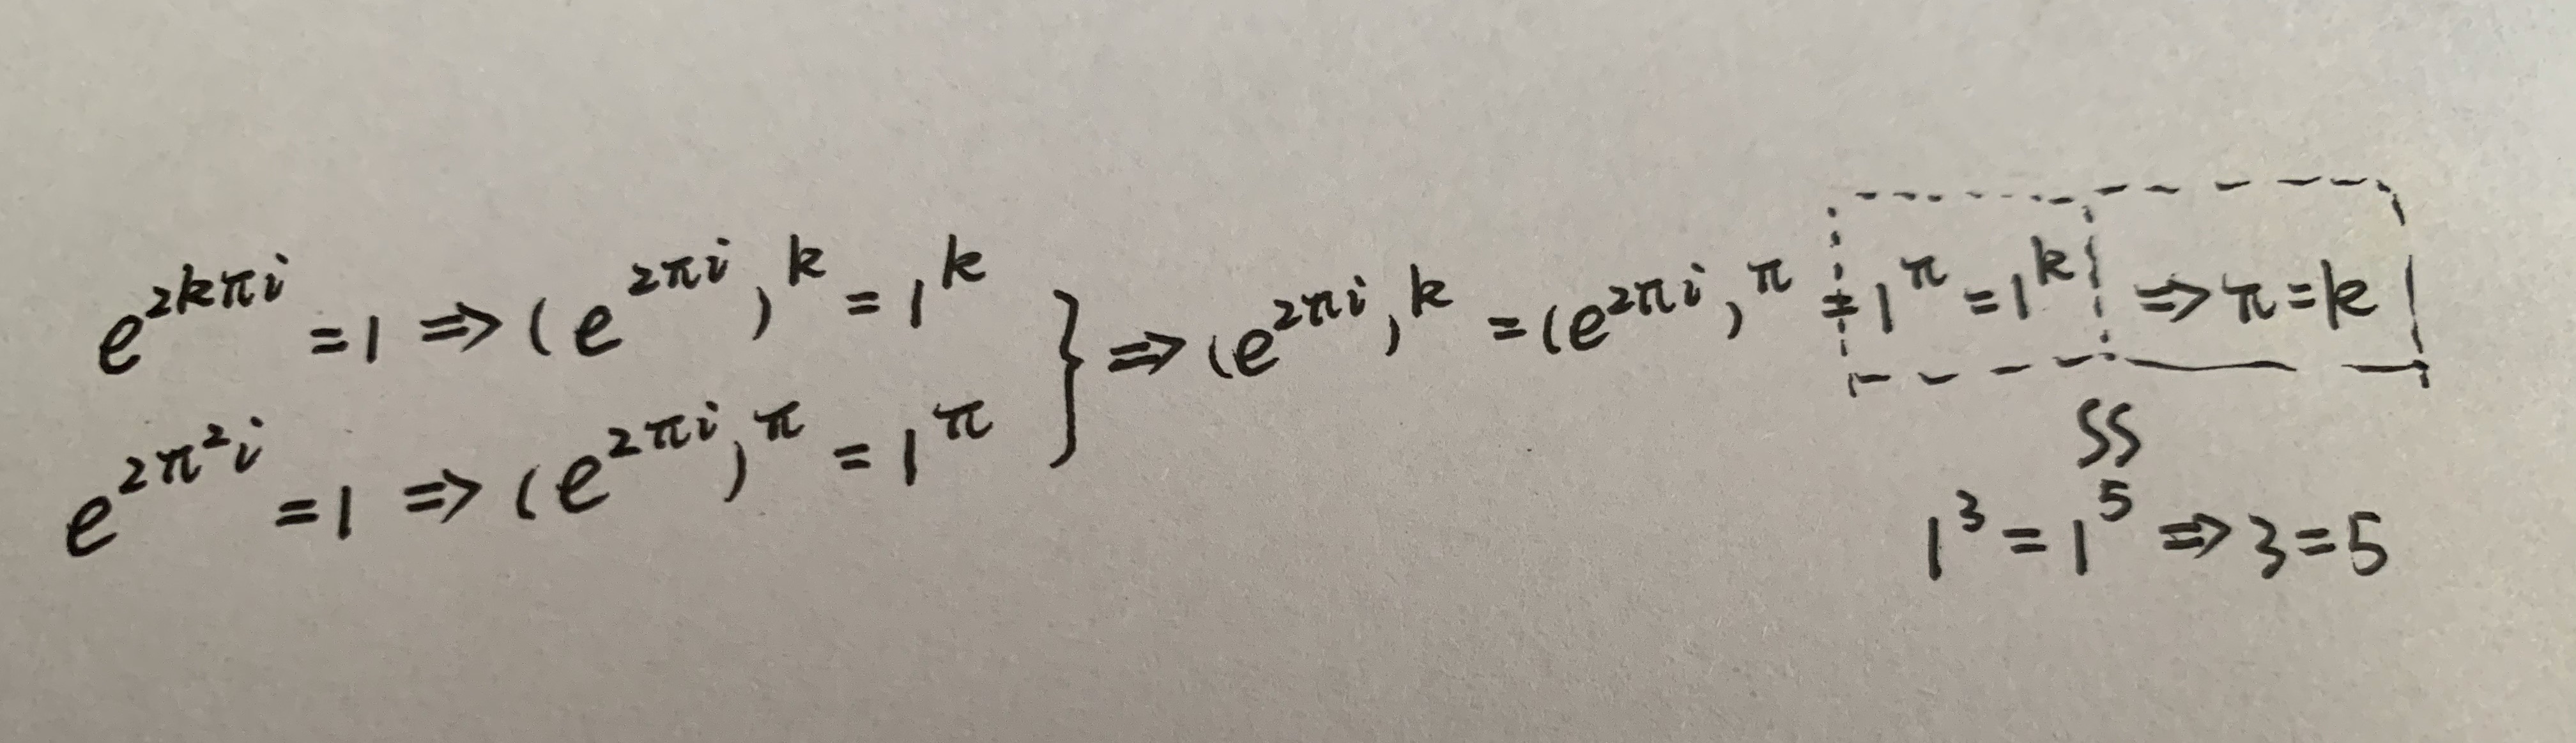 e^{2kπi} = 1 ⇒ (e^{2πi})^k = 1^k
e^{2π²i} = 1 ⇒ (e^{2πi})^π = 1^π
} ⇒ (e^{2πi})^k = (e^{2πi})^π = 1^π = 1^k ⇒ π = k
SS
1^3 = 1^5 ⇒ 3 = 5